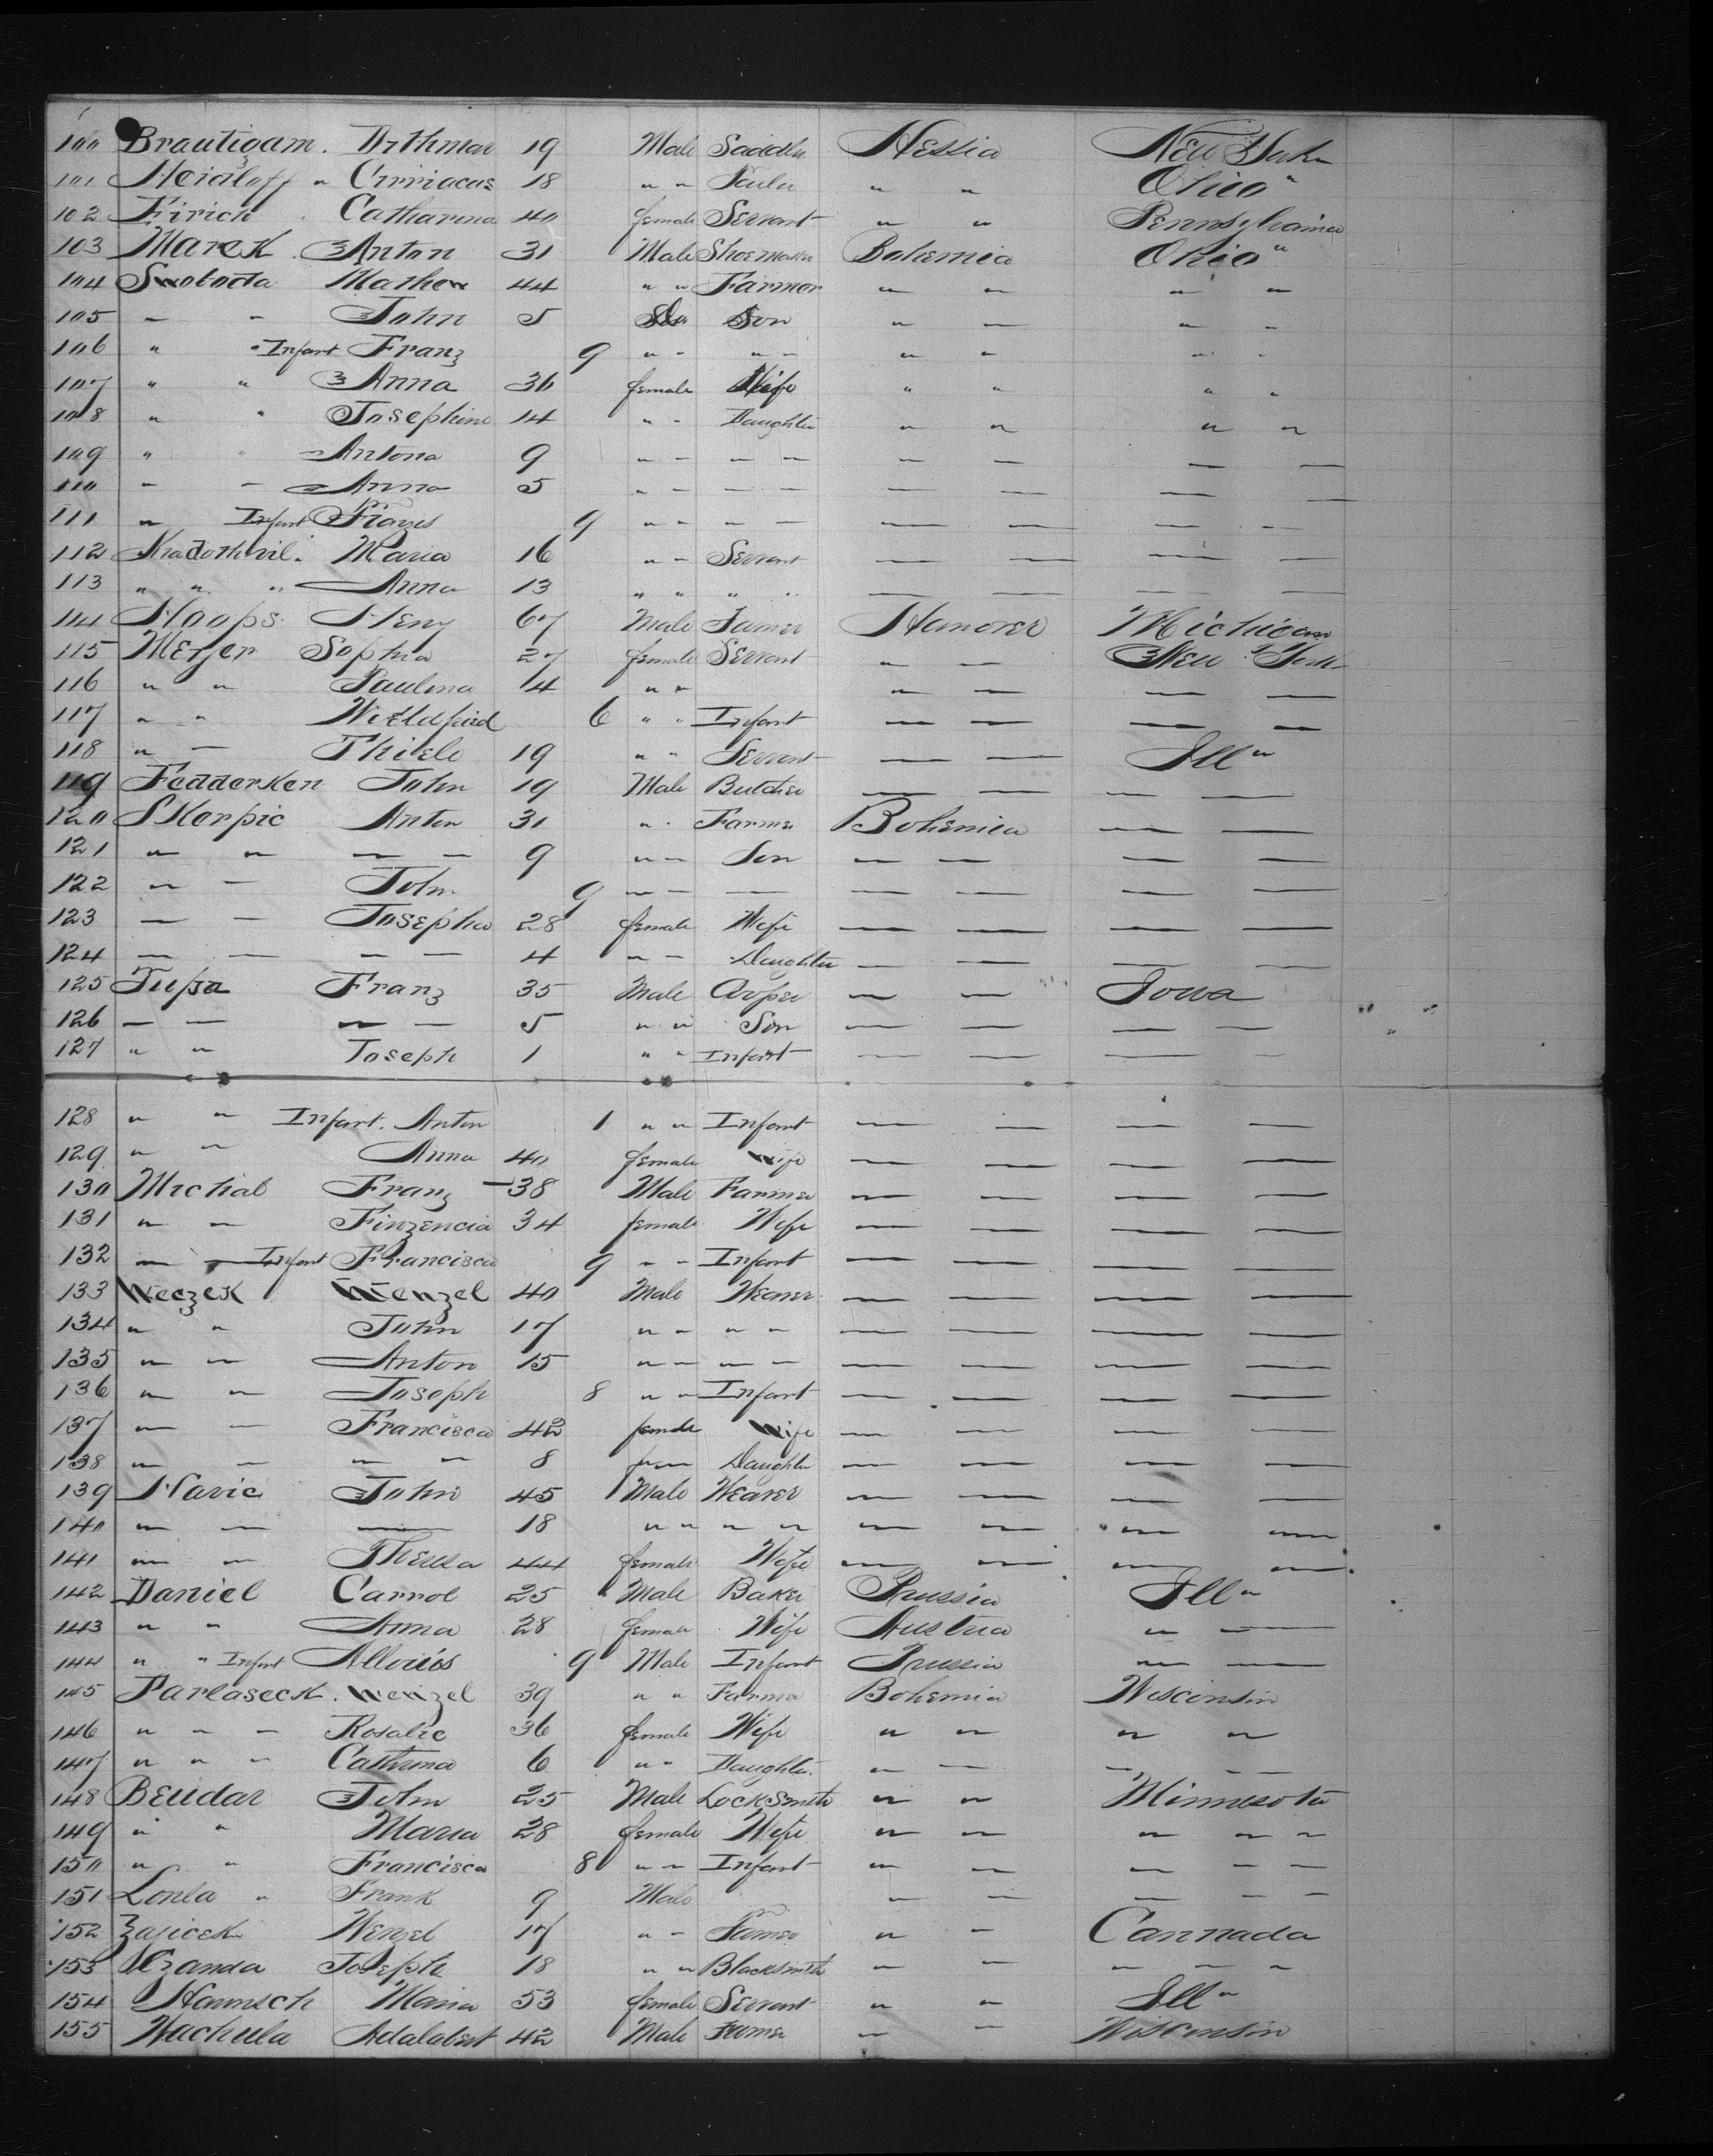 100 Brautigam. Arthmar 19 Male Saddler Hessia New York
101 Heidloff " Cirriacus 18 " " " " Ohio "
102 Eirich Catharina 40 female Servant " " Pennsylvania
103 Marek Anton 31 Male Shoemaker Bohemia Ohio "
104 Swoboda Mathew 44 " " Farmer " " " "
105 " " John 5 Do Son " " " "
106 " " Infant Franz 9 " " " " " " " "
107 " " Anna 36 female Wife " " " "
108 " " Josephine 14 " " Daughter " " " "
109 " " Antona 9 " " " " " " " "
110 " " Anna 5 " " " " " " " "
111 " Infant 9 " " " " " " " "
112 Maria 16 " " Servant " " " "
113 " " " Anna 13 " " " " " " " "
114 Hoops Heny 67 Male Farmer Hanover Michigan
115 Meyer Sophia 27 female Servant " " New York
116 " " Paulina 14 " " " " " "
117 " " 6 " " Infant " " " "
118 " " Thiele 19 " " Servant " " Ill "
119 Feddersen John 19 Male Butcher " " " "
120 Skorpic Anton 31 " " Farmer Bohemia " "
121 " " " " 9 " " Son " " " "
122 " " John 9 " " " " " " "
123 " " Josepha 28 female Wife " " " "
124 " " " " 4 " " Daughter " " " "
125 Tupa Franz 35 Male " " Iowa
126 " " " " 5 " " Son " " " "
127 " " Joseph 1 " " Infant " " " "
128 " " Infant. Anton 1 " " Infant " " " "
129 " " Anna 40 female Wife " " " "
130 Michal Franz 38 Male Farmer " " " "
131 " " Finzencia 34 female Wife " " " "
132 " " Infant Francisca 9 " " Infant " " " "
133 Weczek Wenzel 40 Male Weaver " " " "
134 " " John 17 " " " " " " " "
135 " " Anton 15 " " " " " " " "
136 " " Joseph 8 " " Infant " " " "
137 " " Francisca 42 female Wife " " " "
138 " " " " 8 " Daughter " " " "
139 Havic John 45 Male Weaver " " " "
140 " " " 18 " " " " " " " "
141 " " Theresa 44 female Wife " " " "
142 Daniel Carrol 25 Male Baker Prussia Ill "
143 " " Anna 28 female Wife Austria " "
144 " " Infant Allouis 9 Male Infant Prussia " "
145 Parlaseck. Wenzel 39 " " Farmer Bohemia Wisconsin
146 " " " Rosalie 36 female Wife " " " "
147 " " " Catherina 6 " " Daughter. " " " " "
148 Beudar John 25 Male Locksmith " " Minnesota
149 " " Maria 28 female Wife " " " " "
150 " " Francisca 8 " " Infant " " " " "
151 Lonla " Frank 9 Male " " " " "
152 Zajicek Wenzel 17 " " Farmer " " Cannada
153 Joseph 18 " " Blacksmith " " " " "
154 Hamisch Maria 53 female Servant " " Ill "
155 Wachula Adalabert 42 Male Farmer " " Wisconsin